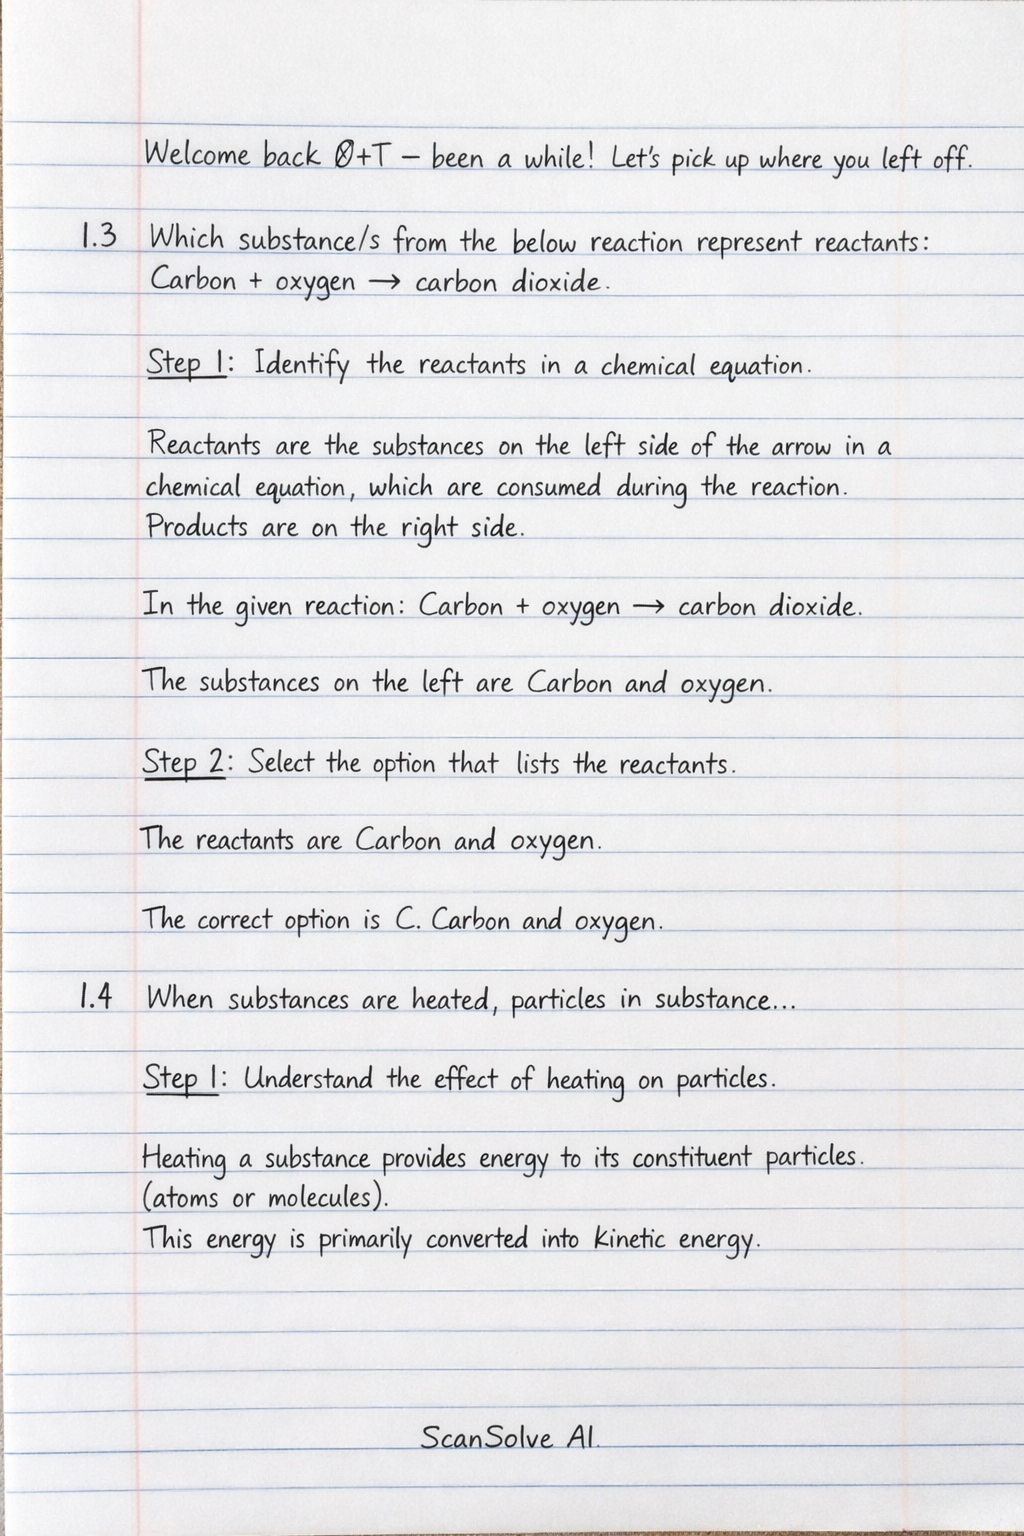 Welcome back Ø+T – been a while! Let's pick up where you left off.
1.3 Which substance/s from the below reaction represent reactants:
Carbon + oxygen → carbon dioxide.
Step 1: Identify the reactants in a chemical equation.
Reactants are the substances on the left side of the arrow in a
chemical equation, which are consumed during the reaction.
Products are on the right side.
In the given reaction: Carbon + oxygen → carbon dioxide.
The substances on the left are Carbon and oxygen.
Step 2: Select the option that lists the reactants.
The reactants are Carbon and oxygen.
The correct option is C. Carbon and oxygen.
1.4 When substances are heated, particles in substance...
Step 1: Understand the effect of heating on particles.
Heating a substance provides energy to its constituent particles.
(atoms or molecules).
This energy is primarily converted into kinetic energy.
ScanSolve AI.